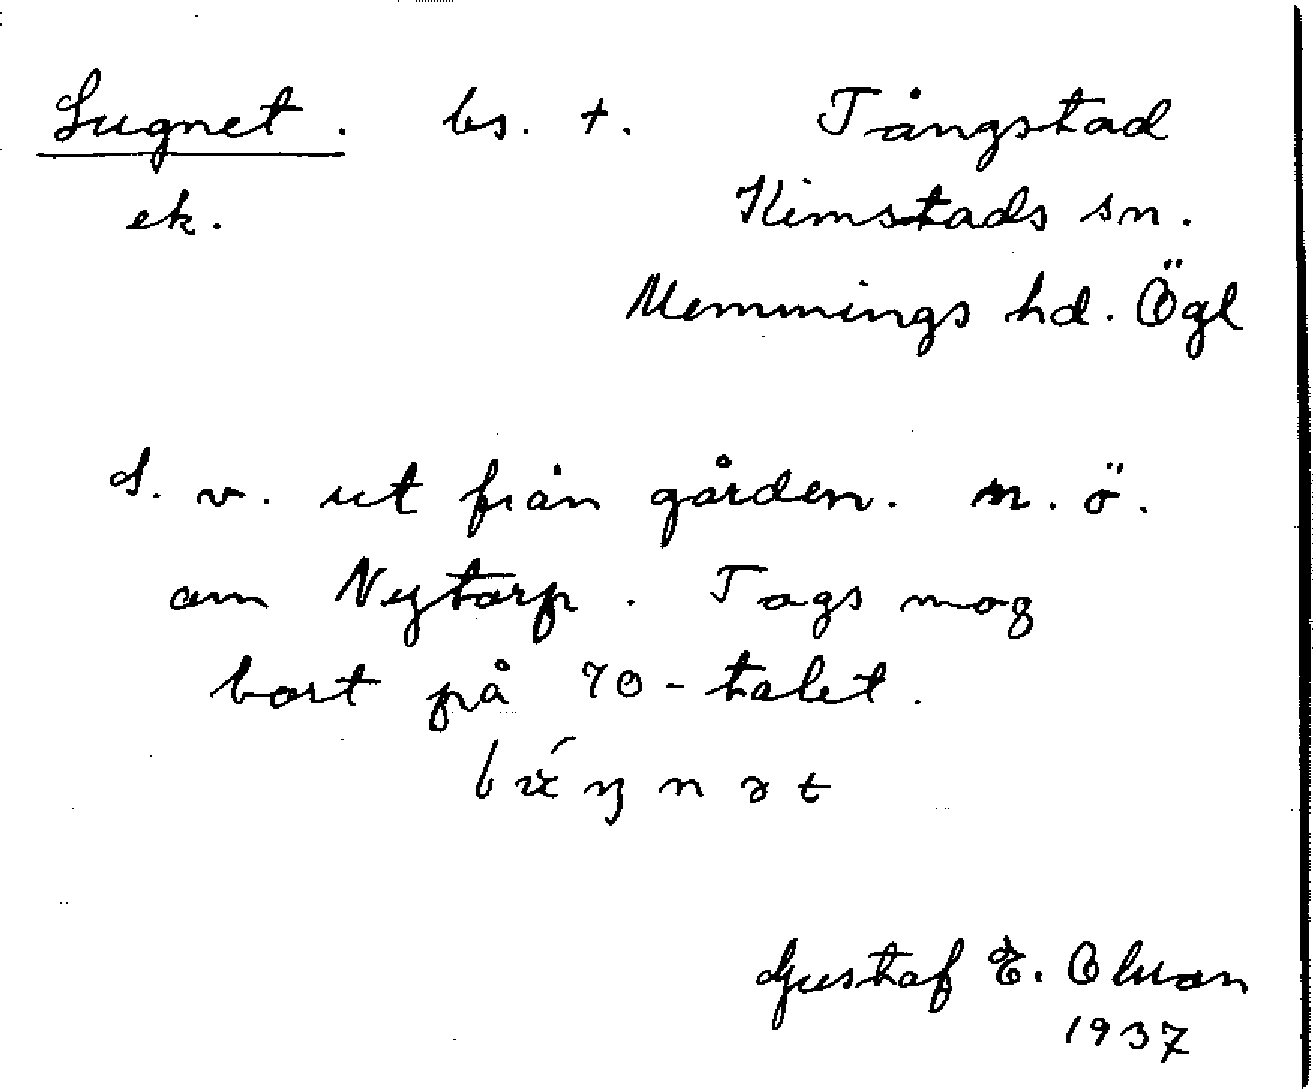 Lugnet. bs. +. Tångstad
ek. Kimstads sn.
Memmings hd. Ögl
S. v. ut från gården. n. ö.
om Nytorp. Togs nog
bort på 70-talet.
Gustaf E. Olsson
1937